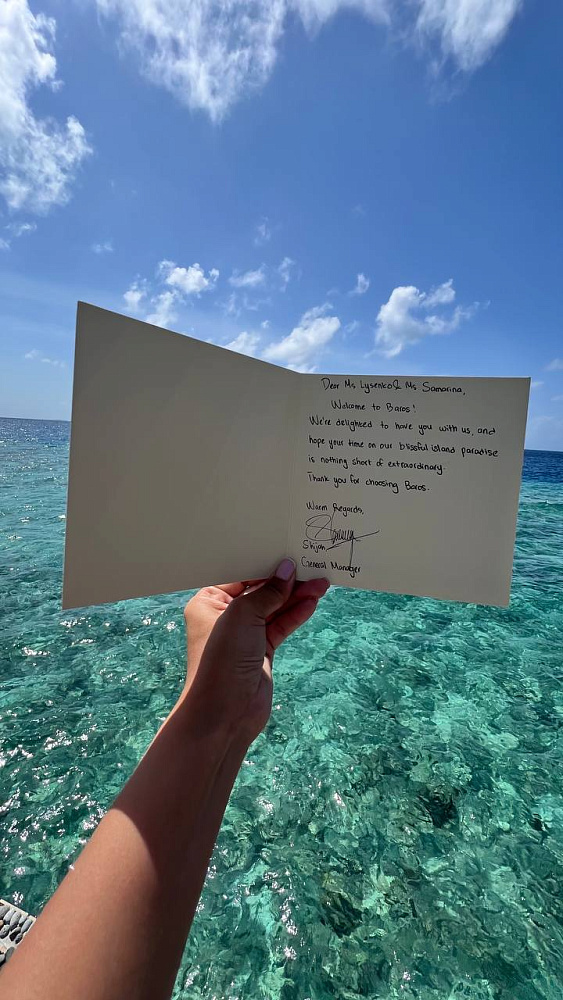 Dear Ms Lysenko & Ms Samarina,
Welcome to Baros!
We're delighted to have you with us, and
hope your time on our blissful island paradise
is nothing short of extraordinary.
Thank you for choosing Baros.
Warm Regards,
Shijah
General Manager